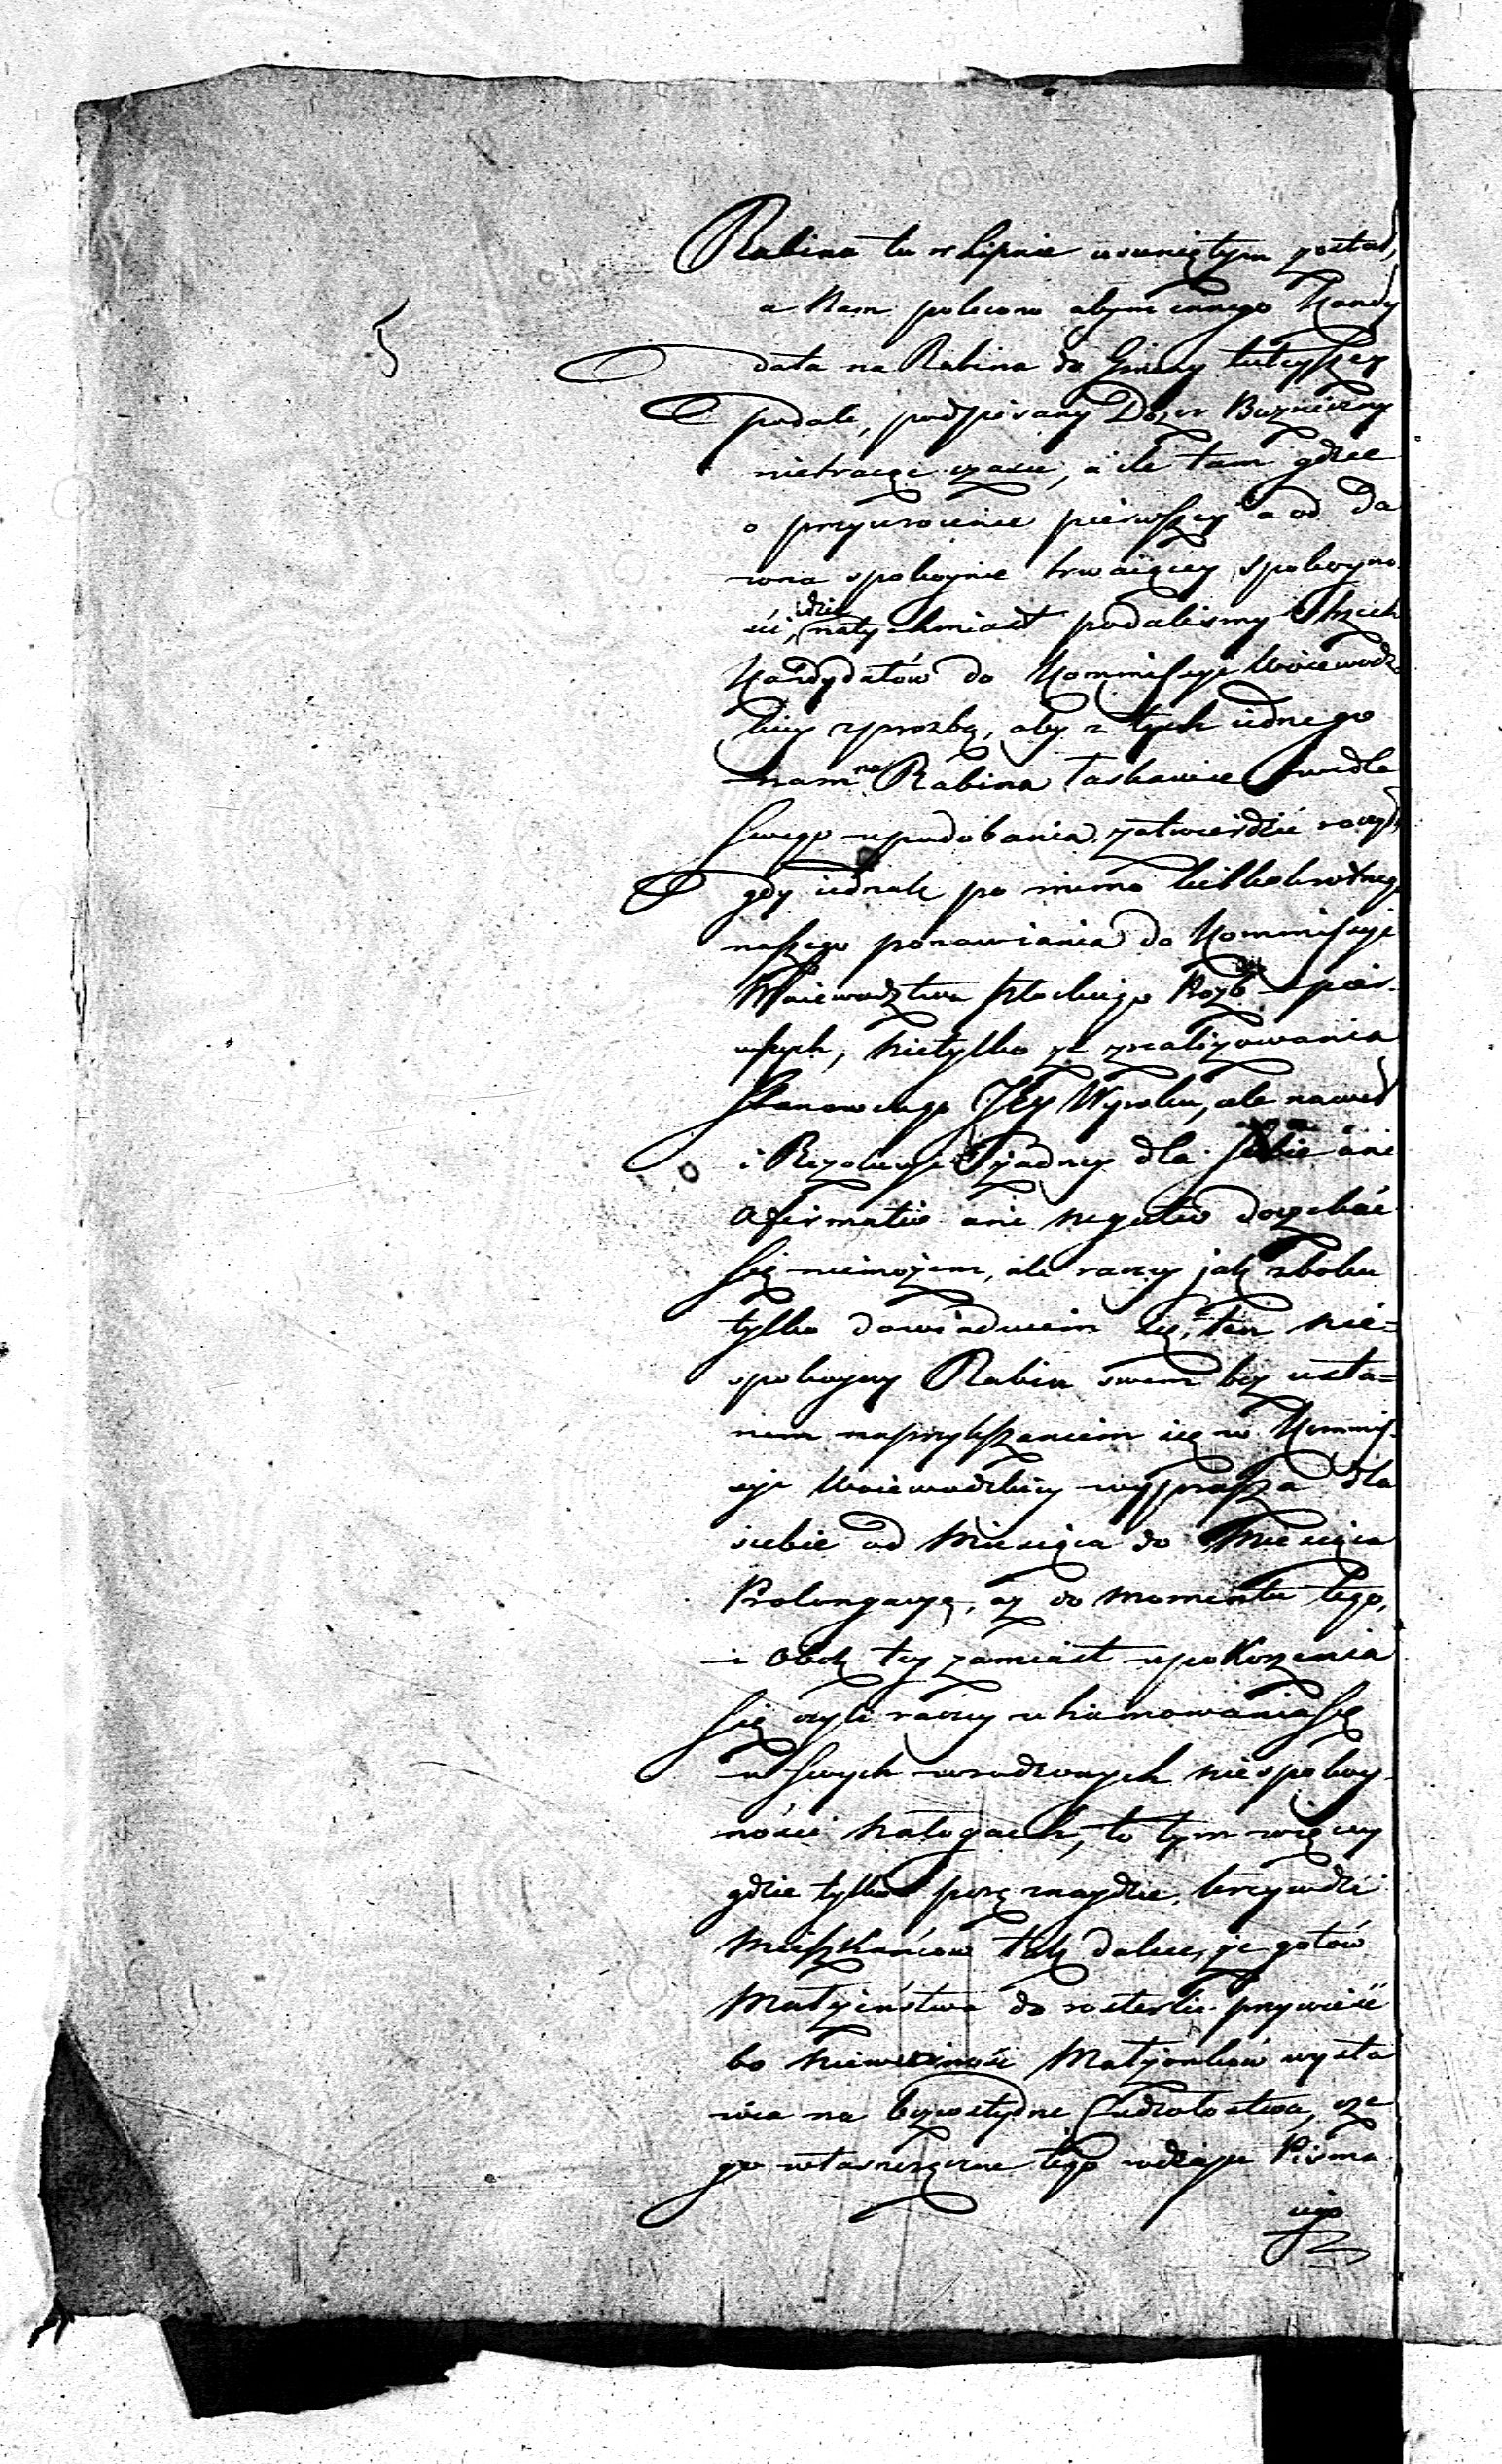 Rabina tu w Lipnie usuniętym został,
a Nam polecono abyśmy innego Kandy
data na Rabina do Gminy tuteyszey
podali, podpisany Dozor Bożniczny
nietracąc czasu, a ile tam gdzie
o przywrocenie pierwszey a od da
wna spokoynie trwaiącey spokoyno
ści, idzie natychmiast podalismy trzech
Kandydatów do Kommissyi Woiewodz
kiey z prozbą, aby z tych iednego
nam na Rabina łaskawie wedle
swego upodobania zatwierdzić raczyła,
gdy iednak po mimo kilkokrotnego
naszego ponawiania do Kommissyi
Woiewodztwa Płockiego Prozb pier-
wszych, nietylko ze zrealizowania
Stanowczego Jey Wyroku, ale nawet
i Rezolucyi żadney dla siebie ani
Afirmative ani negative doczekać
się niemożem, ale raczey jak zboku
tylko dowiaduiem się, ten nie=
spokoyny Rabin swem bez usta=
nem naprzykszaniem się w Kommis-
syi Woiewodzkiey wyprasza dla
siebie od Miesiąca do Miesiąca
Prolongacyę, aż do momentu tego,
i Obok tey zamiast upokorzenia
się czyli raczey uhamowania się
w swych wrodzonych niespokoy
ności nałogach, to tym więcey
gdzie tylko porę znaydzie, krzywdzi
Mieszkańcow tak dalece, że gotów
Małżeństwa do rosterki przywieść
bo niewinność Małżonków wysta
wia na bezwstydne Cudzołostwa, cze
go własnoręczne tego rodzaju Pisma
iego